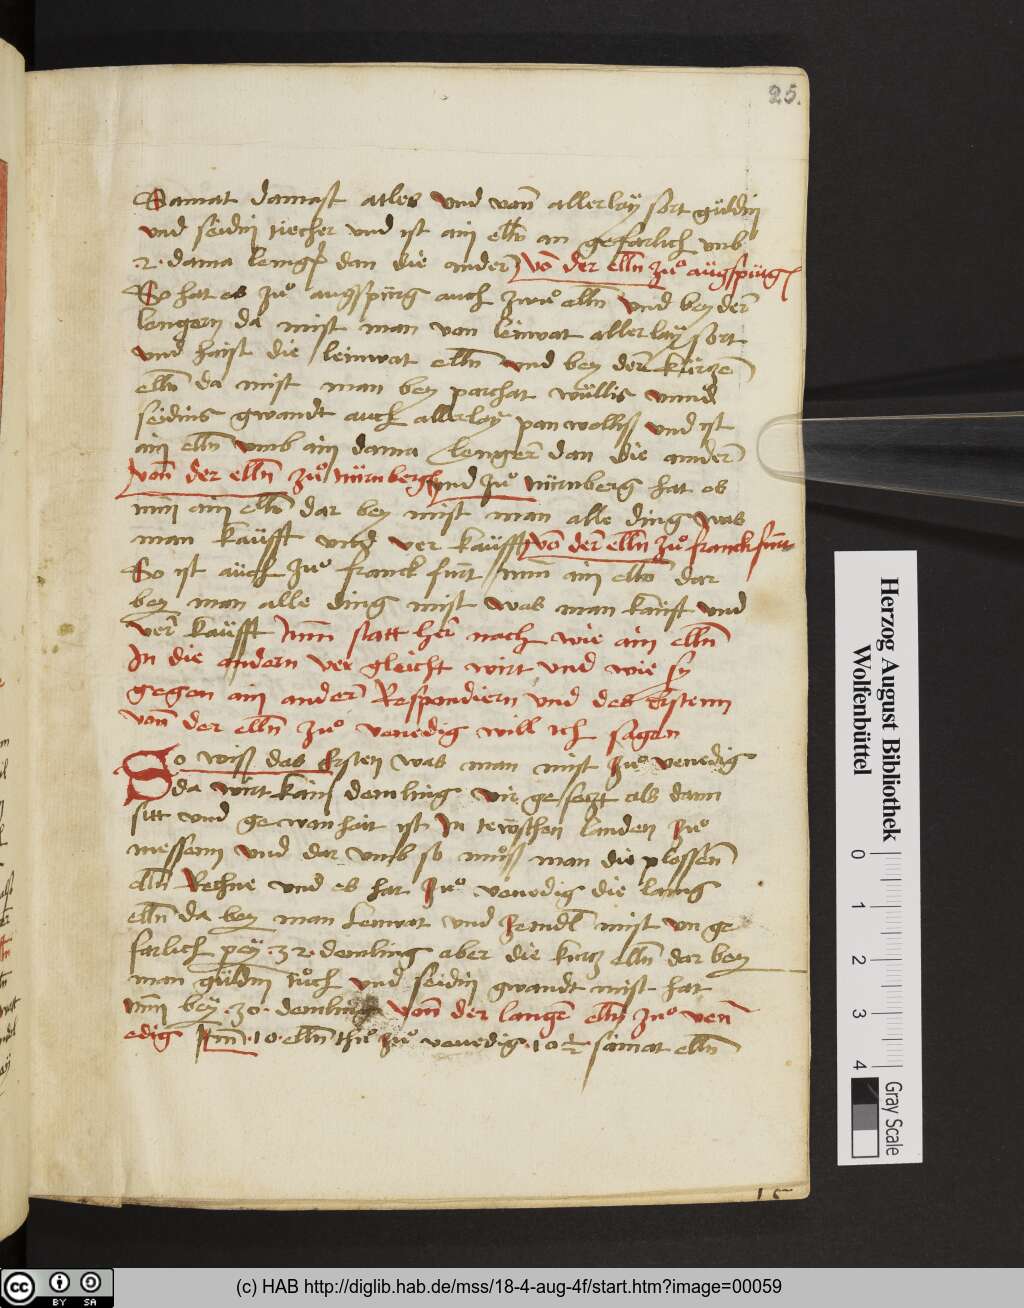 25.
Samat damast atles und von allerlaÿ sort güldin
und seidin tiecher und ist ain elln an gefarlich umb
.2. dama lenger dan die ander Von der elln zuͦ augspürg
So hat es zuͦ augspürg auch zwuͦ elln und bey der
lengern da mist man von leinwat allerlaÿ sort
und haist die leinwat elln und bey der kürtzen
elln da mist man bey parchat wüllis unnd
seidins gwandt auch allerlaÿ panwolliss und ist
ain elln umb ain dama lenger dan die ander
von der elln zuͦ nürnberg und zuͦ nürnberg hat es
nun ain elln dar bey mist man alle ding was
man kaüfft und ver kaüfft von der elln zuͦ franckfurt
So ist aüch zuͦ franck furt nun ain elln dar
bey man alle ding mist was man kaufft und
ver kaüfft Nun statt her nach wie ain elln
In die andern ver gleicht wirt und wie sy
gegen ain ander Respondiern und des Erstenn
von der elln zuͦ venedig will ich sagen
So wiss das Ersten was man mist zuͦ venedig
da wirt kain demling uir ge setzt als dann
sitt und gewanhait ist In teẅschen landen zuͦ
messenn und dar umb so muͦss man die plossen
elln Rechne und es hat zuͦ venedig die lanng
elln da bey man Leinwat und zendl mist un ge
farlich peÿ .32. demling aber die kurtz elln dar bey
man güldin tuͦch und seidin gwandt mist hat
nun bey .30. demling Von der langen elln zuͦ ven
edig Item .10. elln thuͦ zuͦ venedig .10½ samat elln
15
Herzog August Bibliothek
Wolfenbüttel
0 1 2 3 4
Gray Scale
cc BY SA
(c) HAB http://diglib.hab.de/mss/18-4-aug-4f/start.htm?image=00059